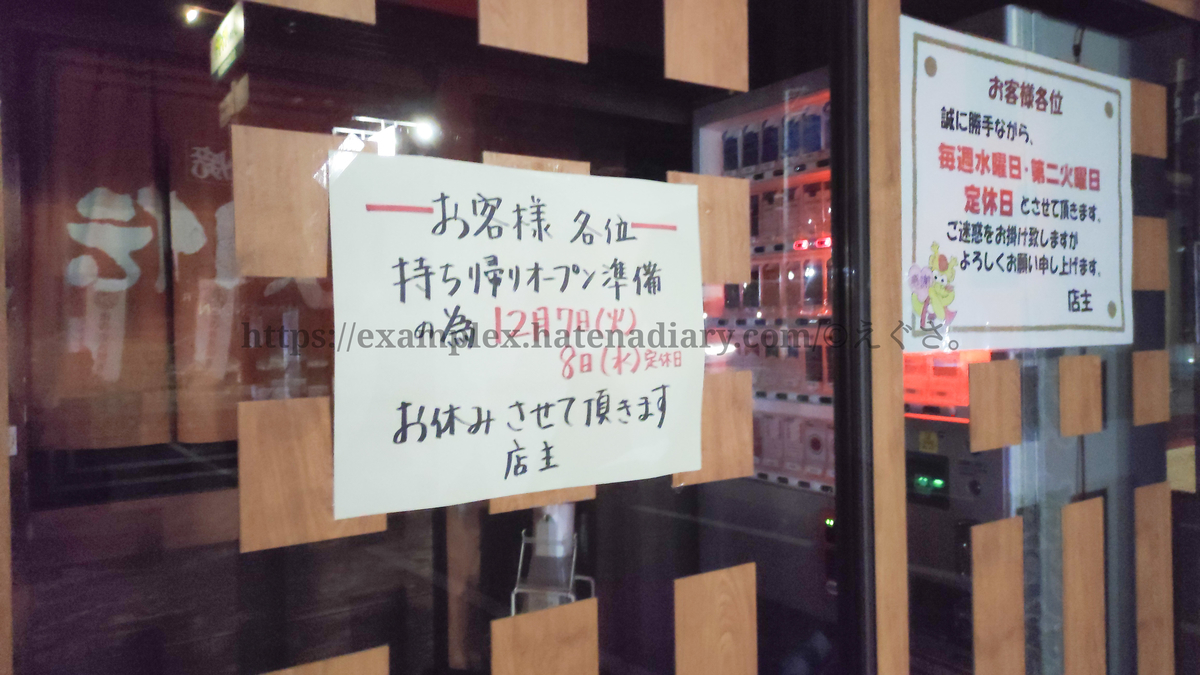 お客様 各位
持ち帰りオープン準備
の為 12月7日(火)
8日(水)定休日
お休みさせて頂きます
店主
お客様各位
誠に勝手ながら、
毎週水曜日・第二火曜日
定休日 とさせて頂きます。
ご迷惑をお掛け致しますが
よろしくお願い申し上げます。
店主
https://examplex.hatenadiary.com/©えぐさ。